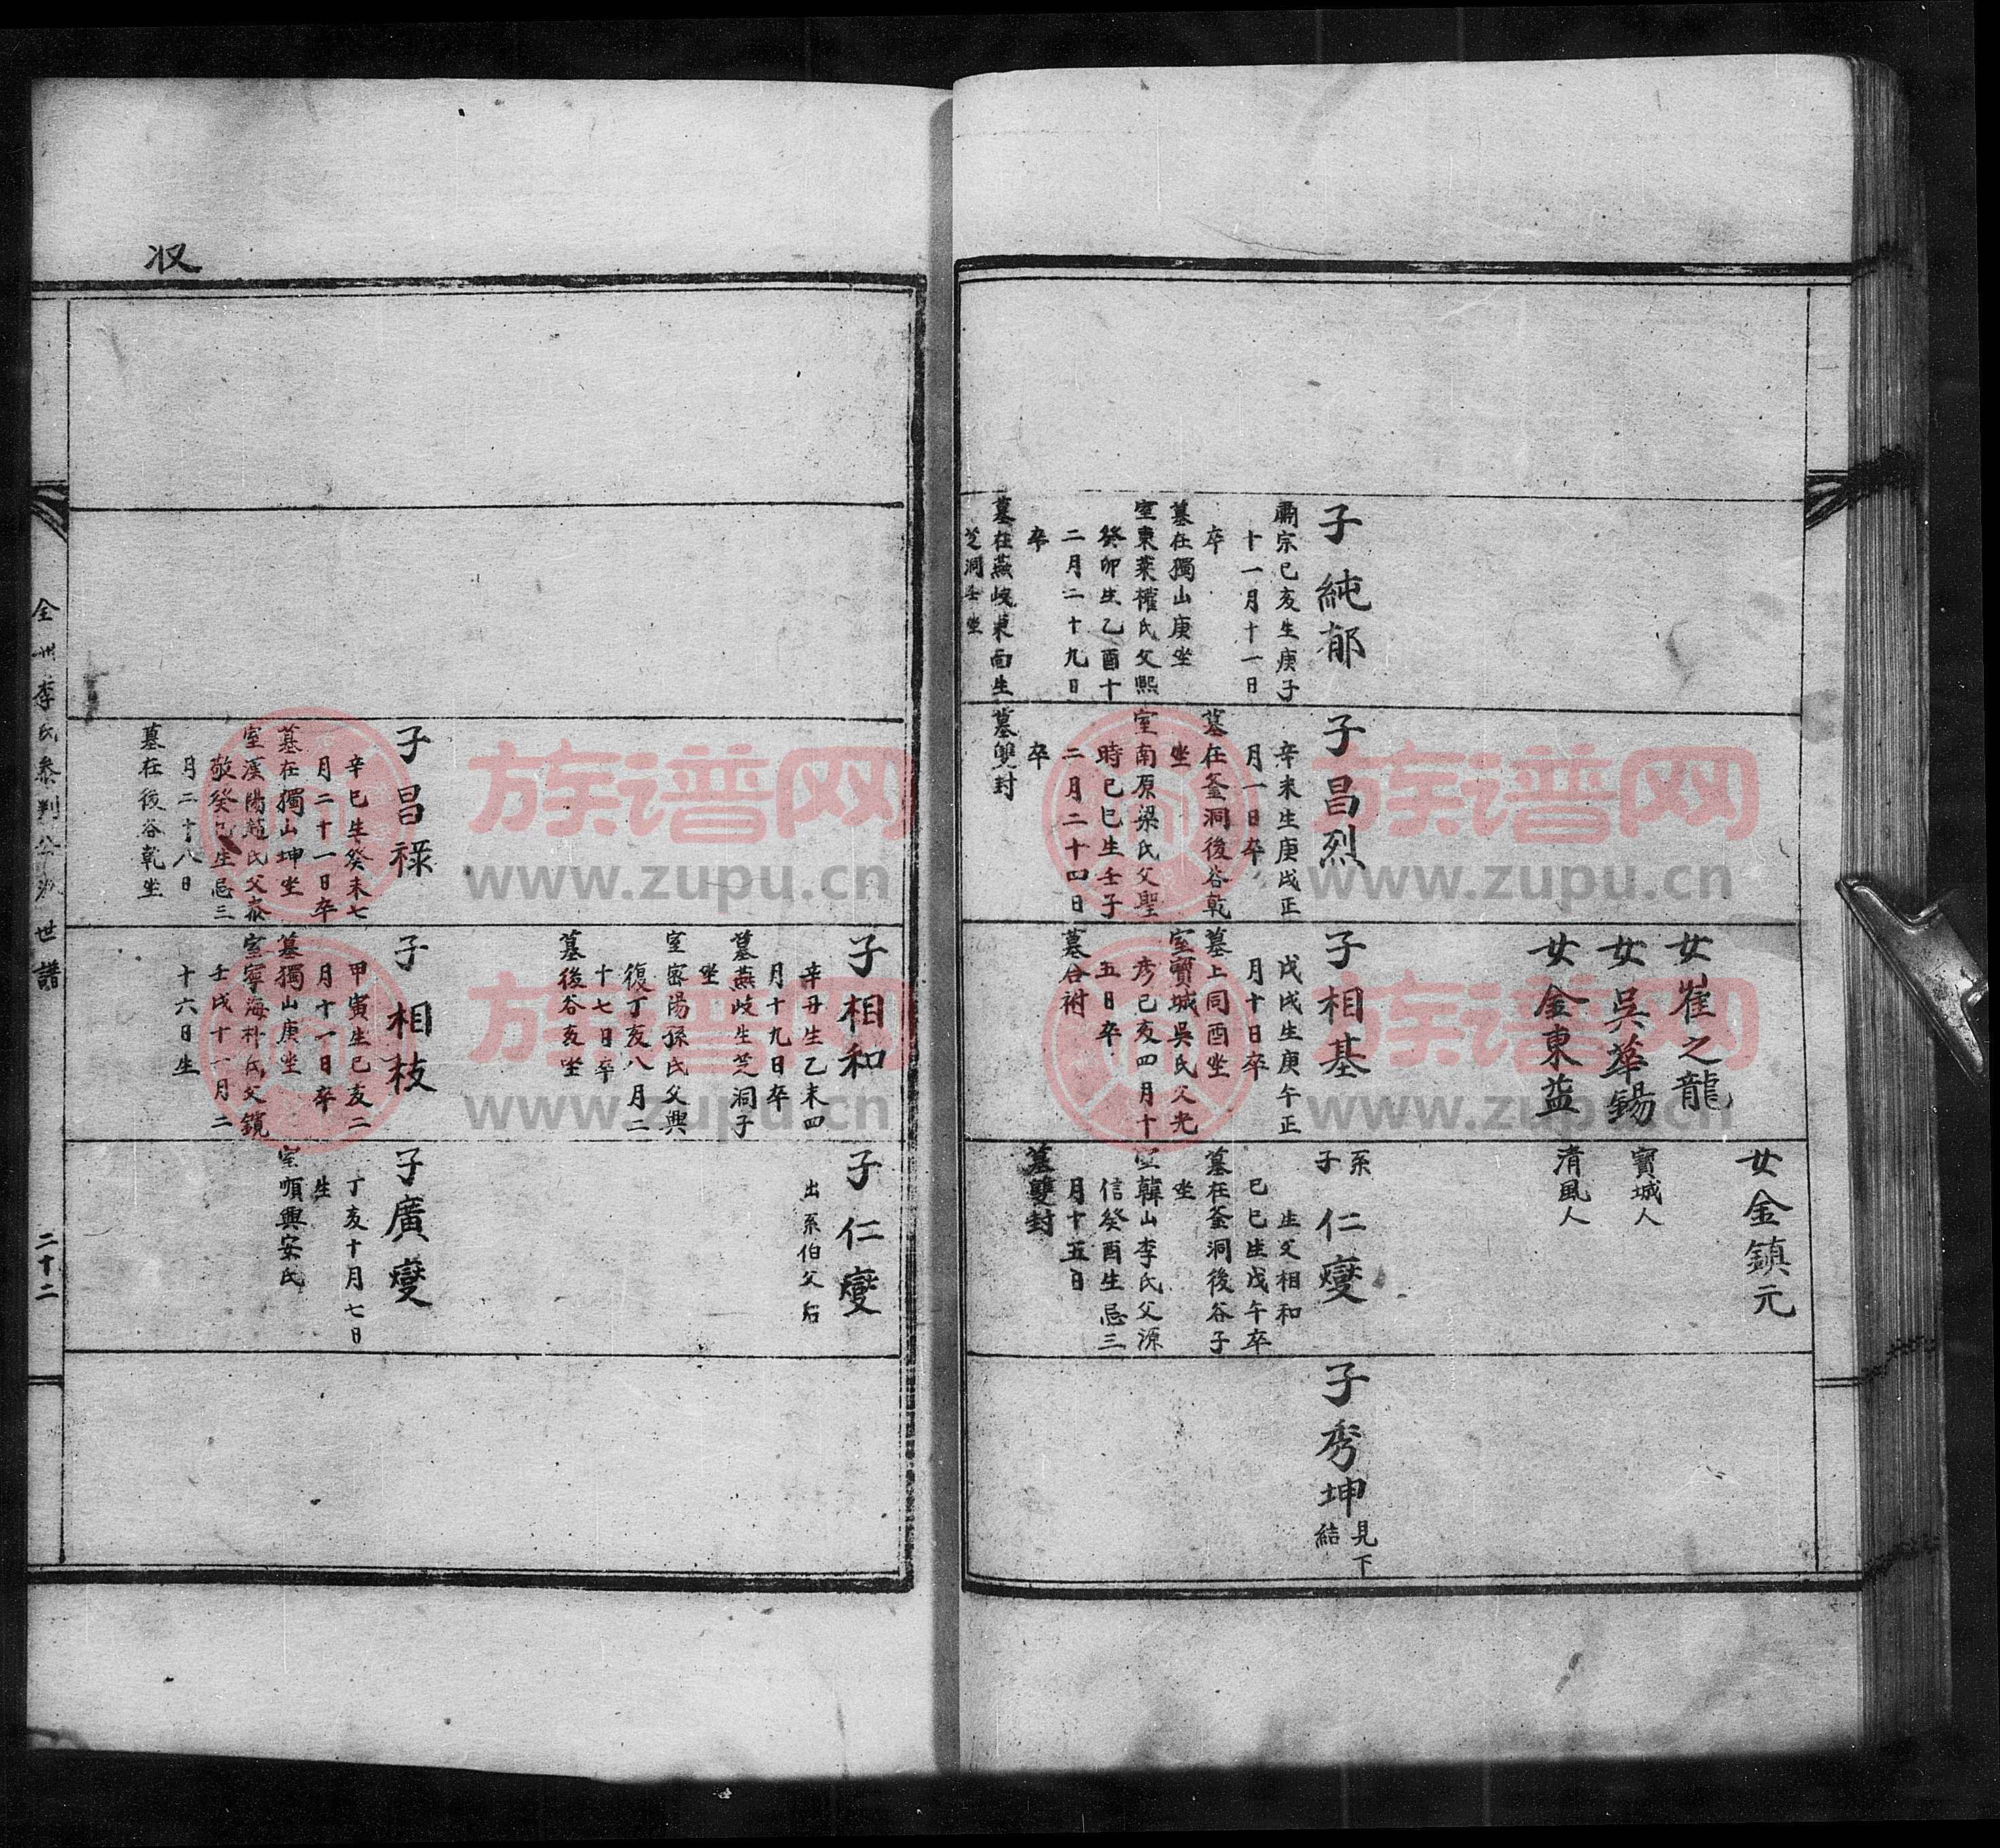 女金鎮元
女崔之龍
女吳華錫
寶城人
女金東益
清風人
子純郁
肅宗己亥生庚子
十一月十一日
卒
墓在獨山庚坐
室東萊權氏父熙
癸卯生乙酉十
二月二十九日
卒
墓在燕岐東面生
芝洞壬坐
子昌烈
辛未生庚戌正
月一日卒
墓在釜洞後谷乾
坐
室南原梁氏父聖
時己巳生壬子
二月二十四日
卒
墓雙封
子相基
戊戌生庚午正
月十日卒
墓上同酉坐
室寶城吳氏父光
彥己亥四月十
五日卒
墓合祔
系
子仁燮
生父相和
己巳生戊午卒
墓在釜洞後谷子
坐
室韓山李氏父源
信癸酉生忌三
月十五日
墓雙封
子秀坤
見下
結
子相和
辛丑生乙未四
月十九日卒
墓燕岐生芝洞子
坐
室密陽孫氏父興
復丁亥八月二
十七日卒
墓後谷亥坐
子仁燮
出系伯父后
子昌祿
辛巳生癸未七
月二十一日卒
墓在獨山坤坐
室漢陽趙氏父
敬癸巳生忌三
月二十八日
墓在後谷乾坐
子相枝
甲寅生己亥二
月十一日卒
墓獨山庚坐
室寧海朴氏父鏡
壬戌十一月二
十六日生
子廣燮
丁亥十月七日
生
室順興安氏
収
全州李氏參判公派世譜
二十二
族谱网
www.zupu.cn
族谱网
www.zupu.cn
族谱网
www.zupu.cn
族谱网
www.zupu.cn